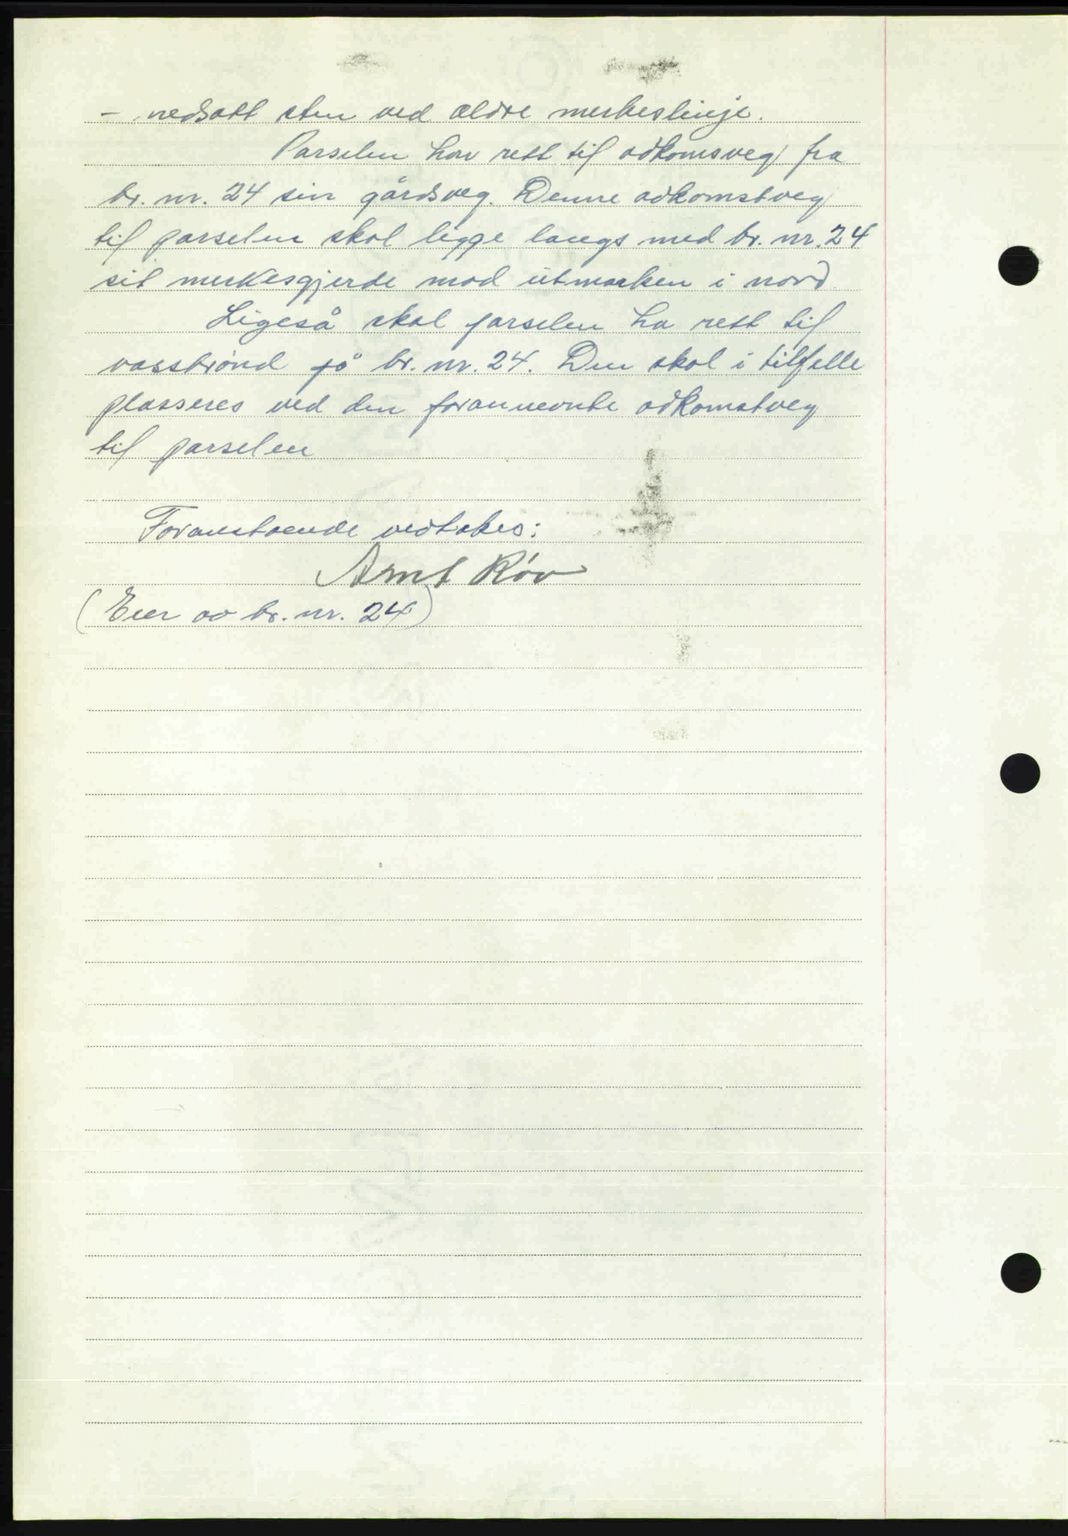 - nedsatt sten ved ældre merkeslinje.
Parselen har rett til adkomsveg fra
br. nr. 24 sin gårdsveg. Denne adkomstveg
til parselen skal ligge langs med br. nr. 24
sit merkesgjerde mod utmarken i nord
Ligeså skal parselen ha rett til
vassbrønd på br. nr. 24. Den skal i tilfelle
plasseres ved den forannevnte adkomstveg
til parselen
Foranstaaende vedtakes:
Arnt Røv
(Eier av br. nr. 24)